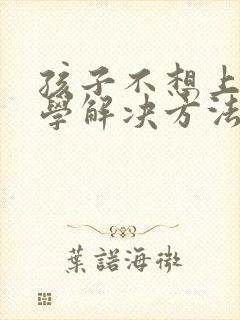 孩子不想上
學解决方法
葉諾海微